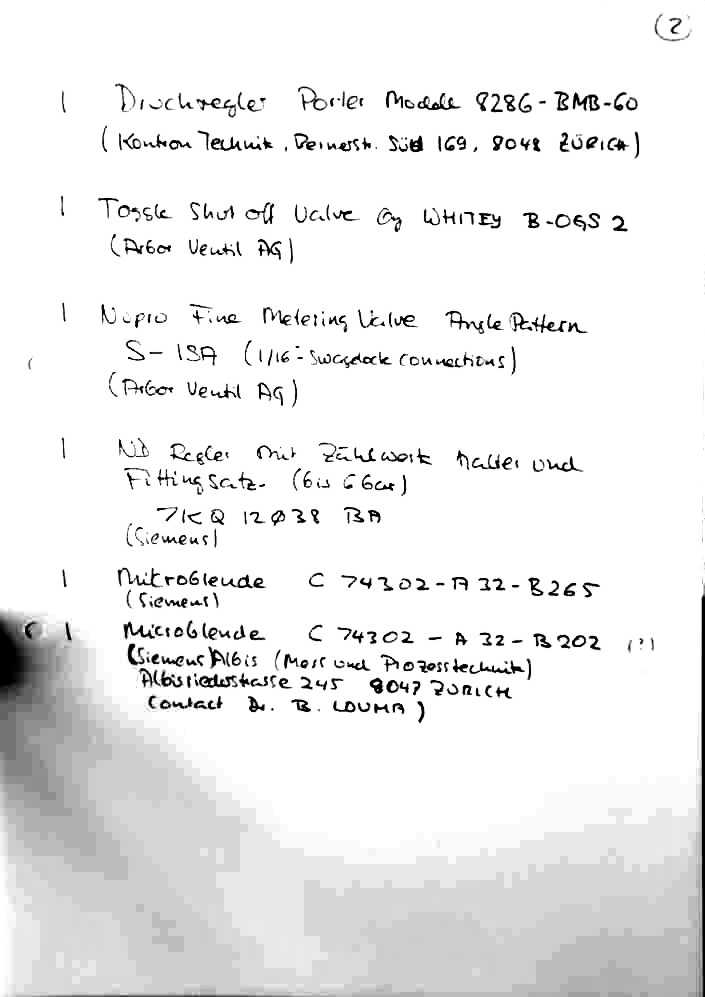 (2)
1 Druckregler Porter Modele 8286-BMB-60
(Kontron Technik, Bernerstr. Süd 169, 8048 ZÜRICH)
1 Toggle Shut off Valve by WHITEY B-OGS 2
(Arbor Ventil AG)
1 Nupro Fine Metering Valve Angle Pattern
S-1SA (1/16"-Swagelock connections)
(Arbor Ventil AG)
1 ND Regler mit Zählwerk halter und
Fittingsatz. (bis 6 bar)
7KQ 12Ø38 BA
(Siemens)
1 Mikroblende C 74302-A32-B265
(Siemens)
( 1 Microblende C 74302 - A 32-B202 (?)
(Siemens Albis (Mess und Prozesstechnik)
Albisriederstrasse 245 8047 ZÜRICH
Contact Dr. B. LOUMA)